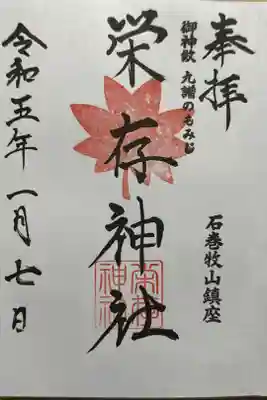 奉拝
御神紋 九谿のもみじ
石巻牧山鎮座
栄存神社
栄存神社
令和五年一月七日